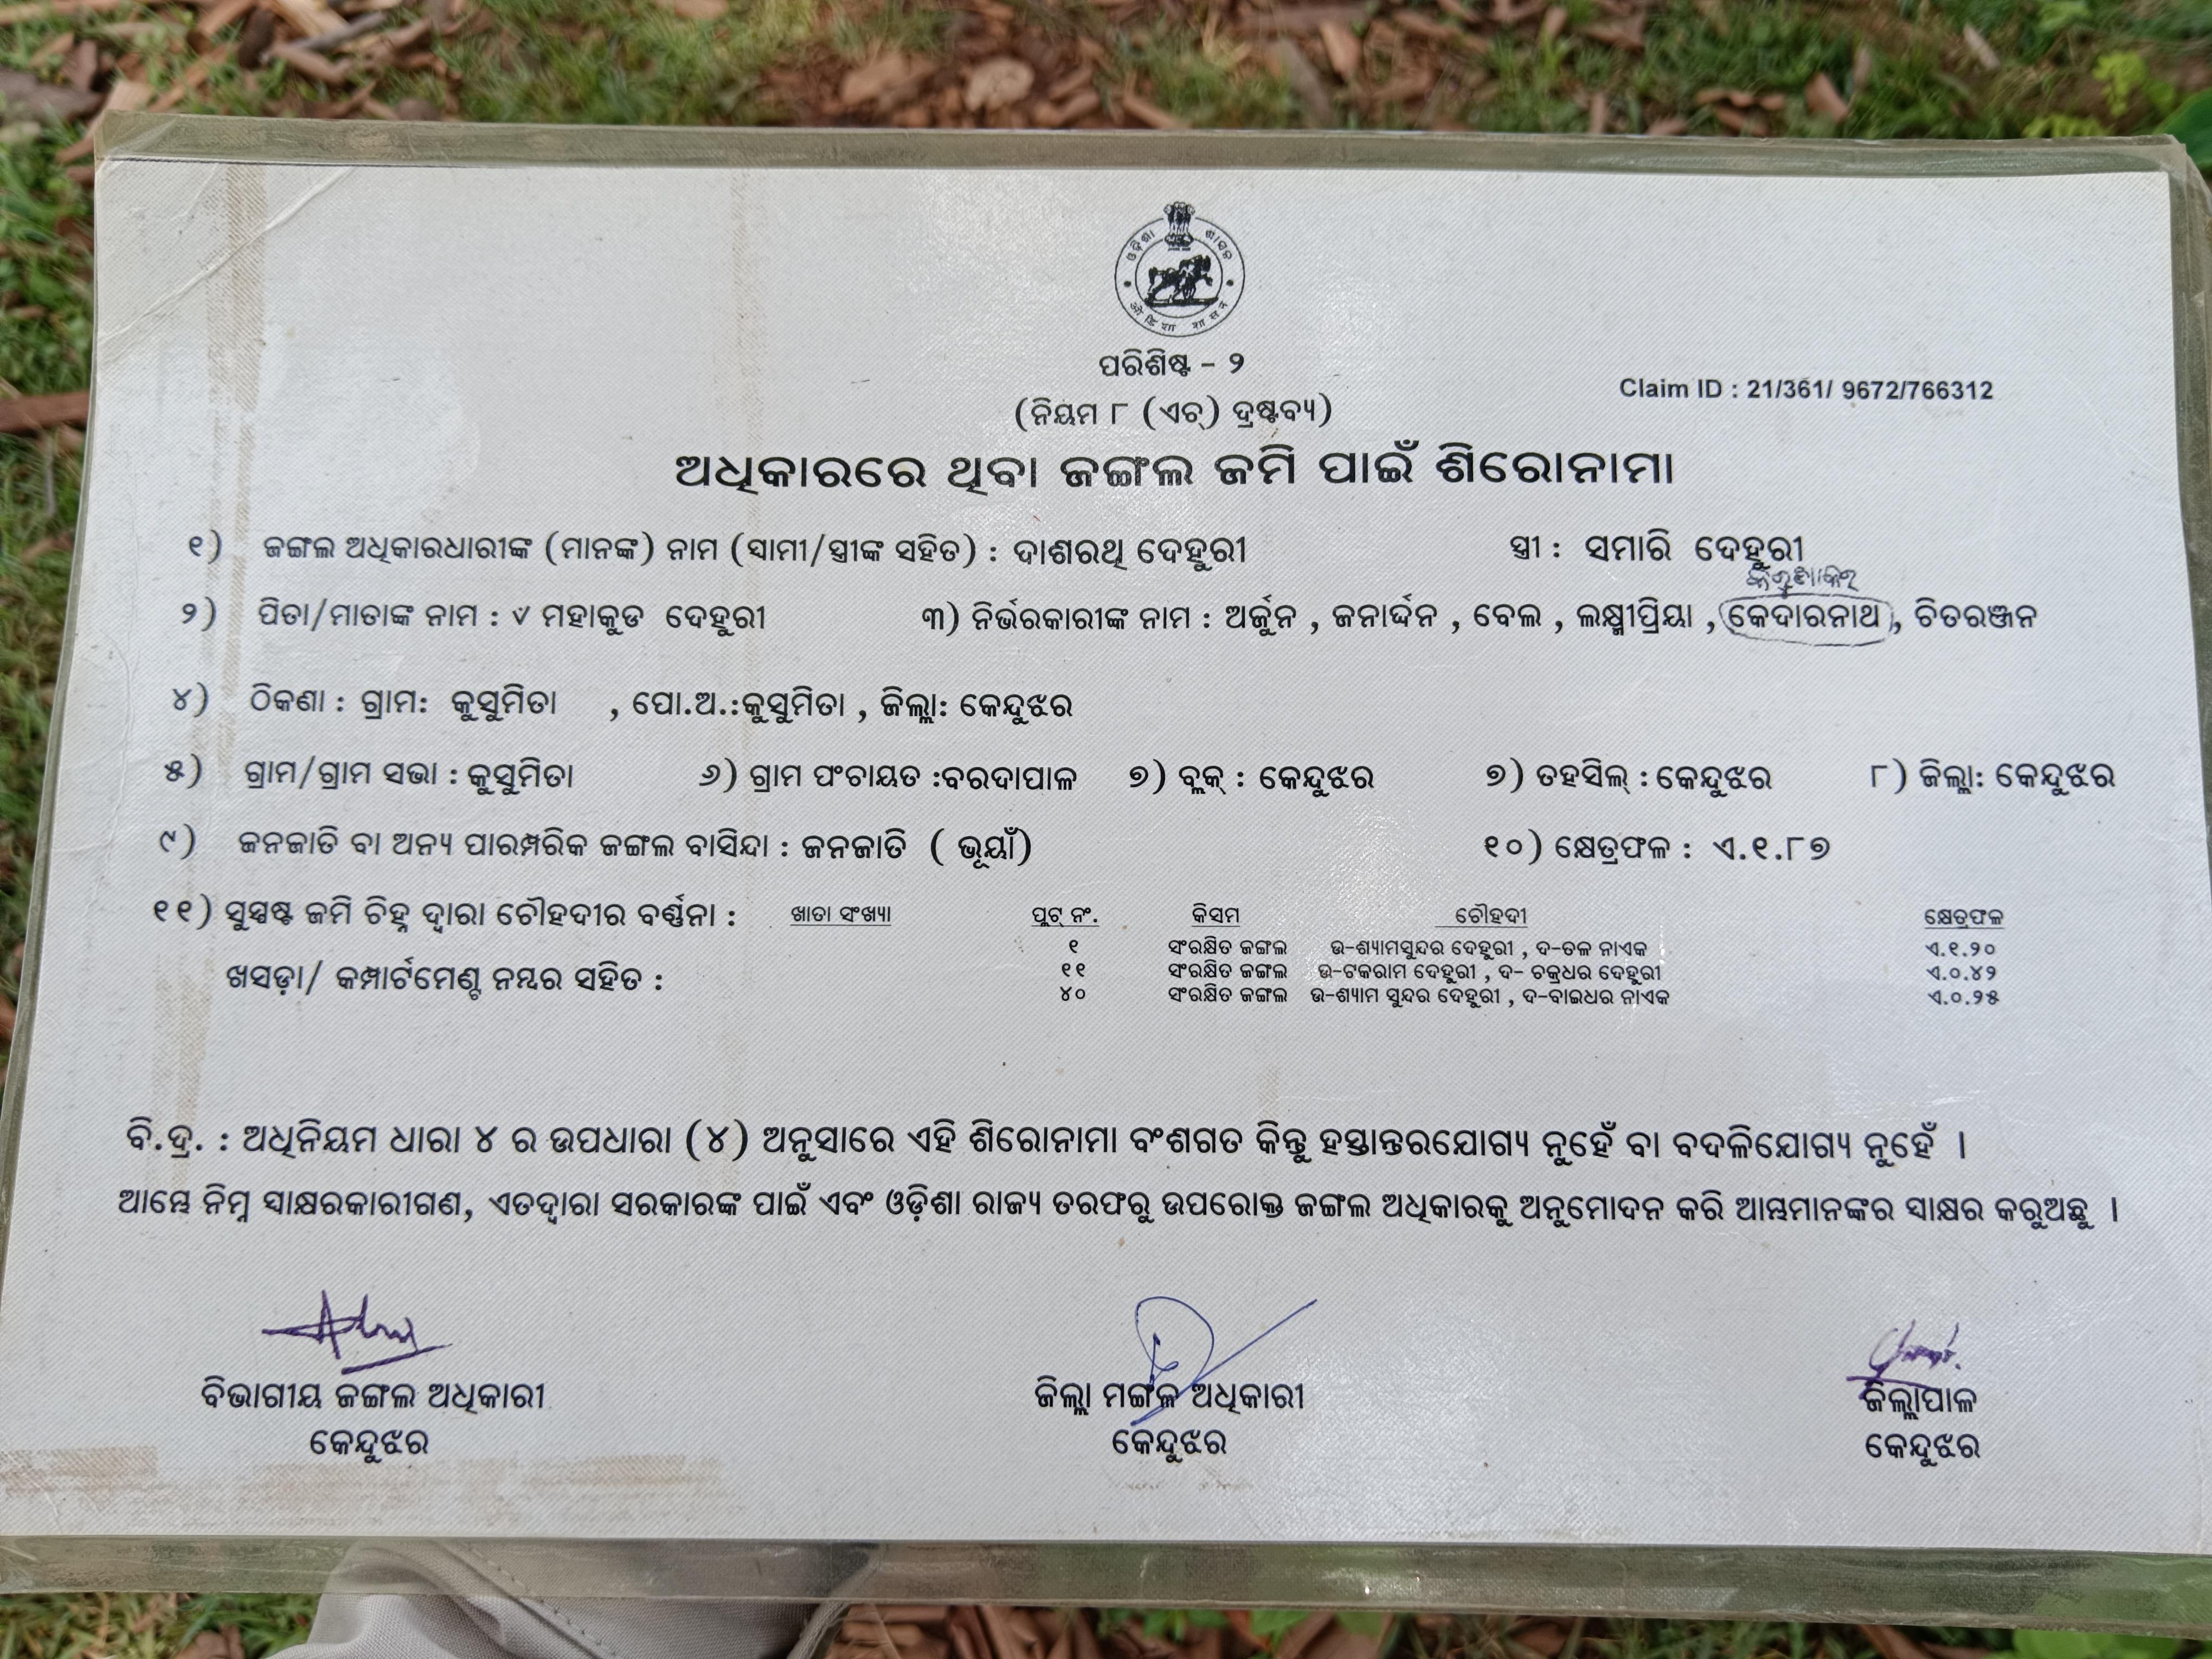 ଓଡ଼ିଶା ଶାସନ
ओडिशा शासन
ପରିଶିଷ୍ଟ - ୨
Claim ID : 21/361/ 9672/766312
(ନିୟମ ୮ (ଏଚ୍) ଦ୍ରଷ୍ଟବ୍ୟ)
ଅଧିକାରରେ ଥିବା ଜଙ୍ଗଲ ଜମି ପାଇଁ ଶିରୋନାମା
୧) ଜଙ୍ଗଲ ଅଧିକାରଧାରୀଙ୍କ (ମାନଙ୍କ) ନାମ (ସ୍ୱାମୀ/ସ୍ତ୍ରୀଙ୍କ ସହିତ) : ଦାଶରଥି ଦେହୁରୀ ସ୍ତ୍ରୀ : ସମାରି ଦେହୁରୀ
୨) ପିତା/ମାତାଙ୍କ ନାମ : ୰ ମହାକୁଡ ଦେହୁରୀ ୩) ନିର୍ଭରକାରୀଙ୍କ ନାମ : ଅର୍ଜୁନ , ଜନାର୍ଦ୍ଦନ , ବେଲ , ଲକ୍ଷ୍ମୀପ୍ରିୟା , କେଦାରନାଥ , ଚିତରଞ୍ଜନ
୪) ଠିକଣା : ଗ୍ରାମ: କୁସୁମିତା , ପୋ.ଅ.:କୁସୁମିତା , ଜିଲ୍ଲା: କେନ୍ଦୁଝର
୫) ଗ୍ରାମ/ଗ୍ରାମ ସଭା : କୁସୁମିତା ୬) ଗ୍ରାମ ପଂଚାୟତ :ବରଦାପାଳ ୭) ବ୍ଲକ୍ : କେନ୍ଦୁଝର ୭) ତହସିଲ୍ : କେନ୍ଦୁଝର ୮) ଜିଲ୍ଲା: କେନ୍ଦୁଝର
୯) ଜନଜାତି ବା ଅନ୍ୟ ପାରମ୍ପରିକ ଜଙ୍ଗଲ ବାସିନ୍ଦା : ଜନଜାତି ( ଭୂୟାଁ) ୧୦) କ୍ଷେତ୍ରଫଳ : ଏ.୧.୮୭
୧୧) ସୁସ୍ପଷ୍ଟ ଜମି ଚିହ୍ନ ଦ୍ୱାରା ଚୌହଦୀର ବର୍ଣ୍ଣନା : ଖାତା ସଂଖ୍ୟା ପ୍ଲଟ୍ ନଂ. କିସମ ଚୌହଦୀ କ୍ଷେତ୍ରଫଳ
୧ ସଂରକ୍ଷିତ ଜଙ୍ଗଲ ଉ-ଶ୍ୟାମସୁନ୍ଦର ଦେହୁରୀ , ଦ-ତଳ ନାଏକ ଏ.୧.୨୦
ଖସଡ଼ା/ କମ୍ପାର୍ଟମେଣ୍ଟ ନମ୍ବର ସହିତ : ୧୧ ସଂରକ୍ଷିତ ଜଙ୍ଗଲ ଉ-ଟକରାମ ଦେହୁରୀ , ଦ- ଚକ୍ରଧର ଦେହୁରୀ ଏ.୦.୪୨
୪୦ ସଂରକ୍ଷିତ ଜଙ୍ଗଲ ଉ-ଶ୍ୟାମ ସୁନ୍ଦର ଦେହୁରୀ , ଦ-ବାଇଧର ନାଏକ ଏ.୦.୨୫
ବି.ଦ୍ର. : ଅଧିନିୟମ ଧାରା ୪ ର ଉପଧାରା (୪) ଅନୁସାରେ ଏହି ଶିରୋନାମା ବଂଶଗତ କିନ୍ତୁ ହସ୍ତାନ୍ତରଯୋଗ୍ୟ ନୁହେଁ ବା ବଦଳିଯୋଗ୍ୟ ନୁହେଁ ।
ଆମ୍ଭେ ନିମ୍ନ ସ୍ୱାକ୍ଷରକାରୀଗଣ, ଏତଦ୍ୱାରା ସରକାରଙ୍କ ପାଇଁ ଏବଂ ଓଡ଼ିଶା ରାଜ୍ୟ ତରଫରୁ ଉପରୋକ୍ତ ଜଙ୍ଗଲ ଅଧିକାରକୁ ଅନୁମୋଦନ କରି ଆମ୍ଭମାନଙ୍କର ସ୍ୱାକ୍ଷର କରୁଅଛୁ ।
ବିଭାଗୀୟ ଜଙ୍ଗଲ ଅଧିକାରୀ ଜିଲ୍ଲା ମଙ୍ଗଳ ଅଧିକାରୀ ଜିଲ୍ଲାପାଳ
କେନ୍ଦୁଝର କେନ୍ଦୁଝର କେନ୍ଦୁଝର